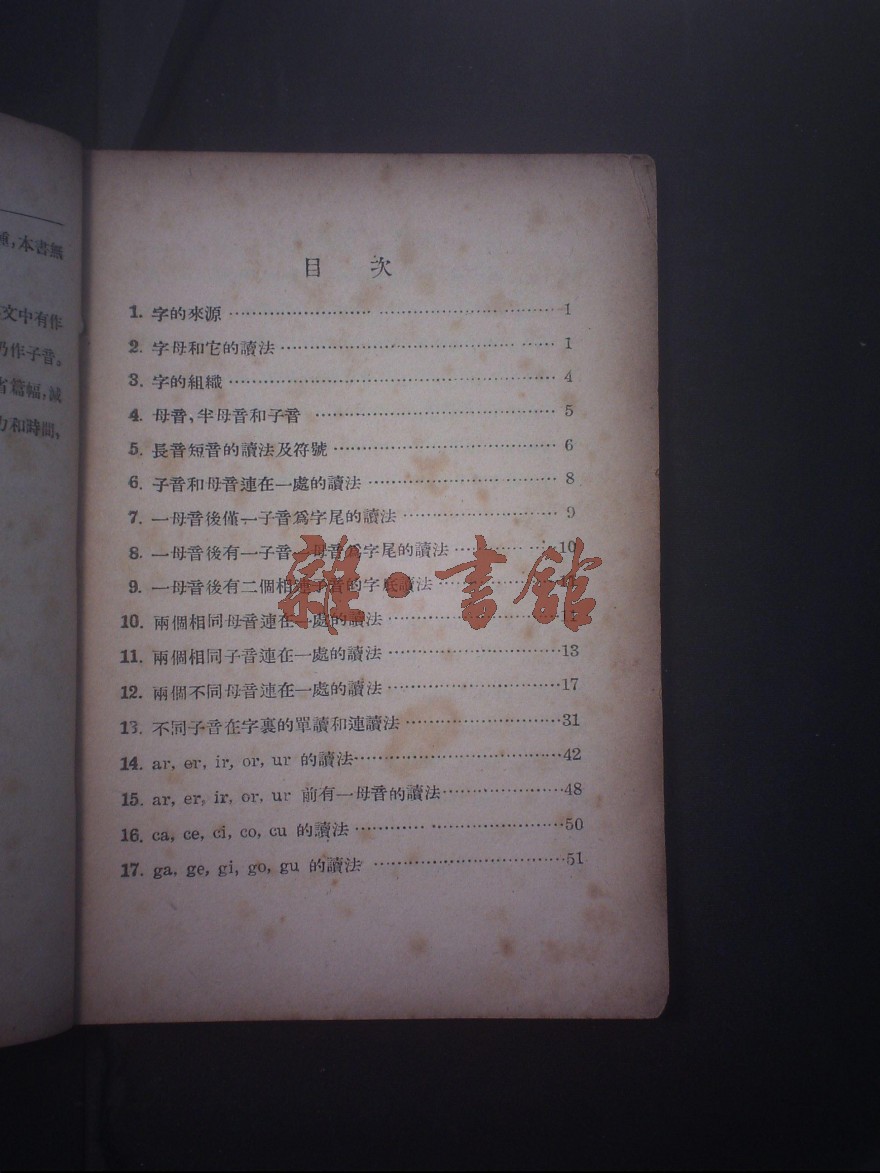 種,本書無
文中有作
乃作子音。
省篇幅,減
力和時間,
目 次
1. 字的來源 ……………………………………… 1
2. 字母和它的讀法 ……………………………… 1
3. 字的組織 ……………………………………… 4
4. 母音、半母音和子音 ………………………… 5
5. 長音短音的讀法及符號 ……………………… 6
6. 子音和母音連在一處的讀法 ………………… 8
7. 一母音後僅一子音爲字尾的讀法 …………… 9
8. 一母音後有一子音一母音爲字尾的讀法 …… 10
9. 一母音後有二個相連子音的字底讀法 ……… 11
10. 兩個相同母音連在一處的讀法 …………… 11
11. 兩個相同子音連在一處的讀法 …………… 13
12. 兩個不同母音連在一處的讀法 …………… 17
13. 不同子音在字裏的單讀和連讀法 ………… 31
14. ar, er, ir, or, ur 的讀法 ……………… 42
15. ar, er, ir, or, ur 前有一母音的讀法 …… 48
16. ca, ce, ci, co, cu 的讀法 ……………… 50
17. ga, ge, gi, go, gu 的讀法 ……………… 51
雜·書館